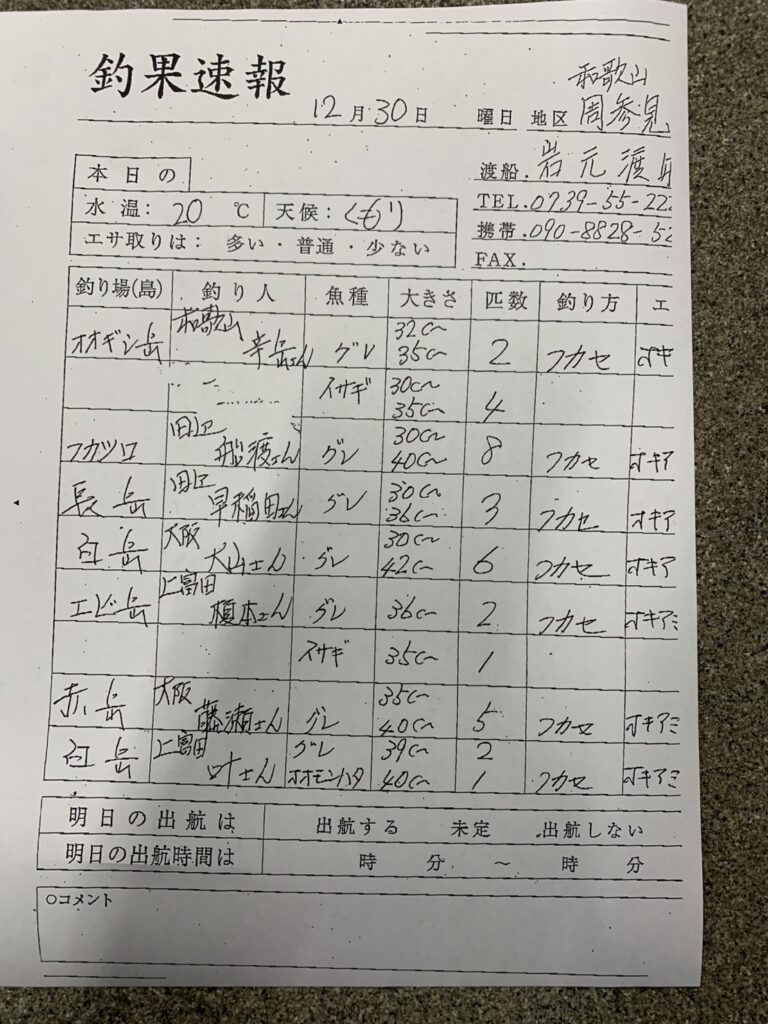 釣果速報
12月30日 曜日 地区 和歌山 周参見
渡船. 岩元渡
本日の
水温: 20 ℃ 天候: くもり
TEL. 0739-55-22
エサ取りは: 多い・普通・少ない
携帯. 090-8828-52
FAX.
釣り場(島) 釣り人 魚種 大きさ 匹数 釣り方 エ
オオギシ岳 和歌山 さん グレ 32㎝ 35㎝ 2 フカセ オキ
イサギ 30㎝ 35㎝ 4
フカツロ 田辺 船渡さん グレ 30㎝ 40㎝ 8 フカセ オキア
長岳 田辺 早稲田さん グレ 30㎝ 36㎝ 3 フカセ オキア
白岳 大阪 大山さん グレ 30㎝ 42㎝ 6 フカセ オキア
エビ岳 上富田 榎本さん グレ 36㎝ 2 フカセ オキアミ
イサギ 35㎝ 1
赤岳 大阪 藤瀬さん グレ 35㎝ 40㎝ 5 フカセ オキアミ
白岳 上富田 叶さん グレ 39㎝ 2
オオモンハタ 40㎝ 1 フカセ オキアミ
明日の出航は 出航する 未定 出航しない
明日の出航時間は 時 分 ~ 時 分
○コメント